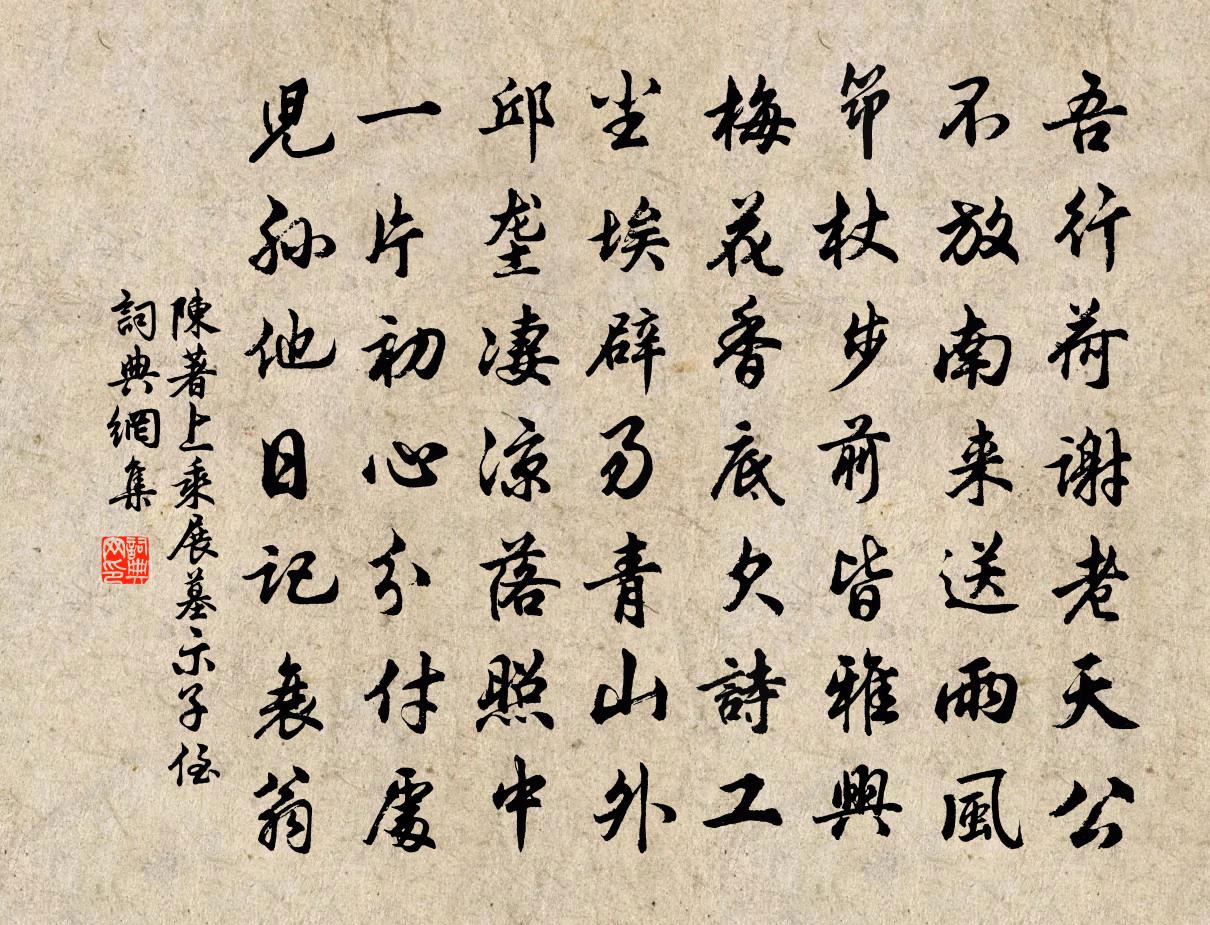 吾行荷謝老天公
不放南来送雨風
笻杖步前皆雅興
梅花香底欠詩工
尘埃辟易青山外
邱垄凄凉落照中
一片初心分付處
児孫他日記衰翁
陳著上乘展墓示子侄
詞典網集
詞典網印